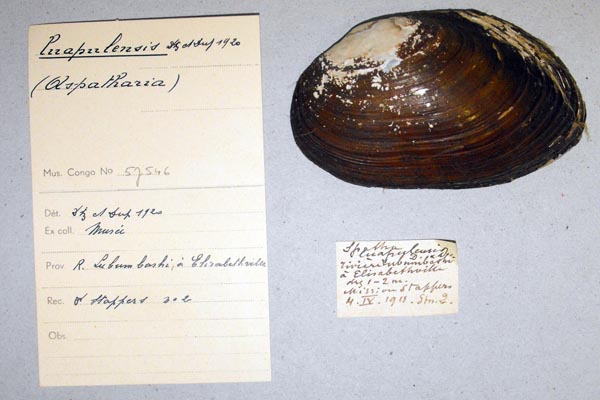 Luapulensis Dtz et Dup 1920
(Aspatharia)
Mus. Congo No 57546
Dét. Dtz et Dup 1920
Ex coll. Musée
Prov. R. Lubumbashi, à Elisabethville
Rec. Dr Stappers n° 2
Obs.
Spatha
luapulensis
rivière
à Elisabethville
drg 1-2 m.
Mission Stappers
4. IV. 1911. Stn. 2.